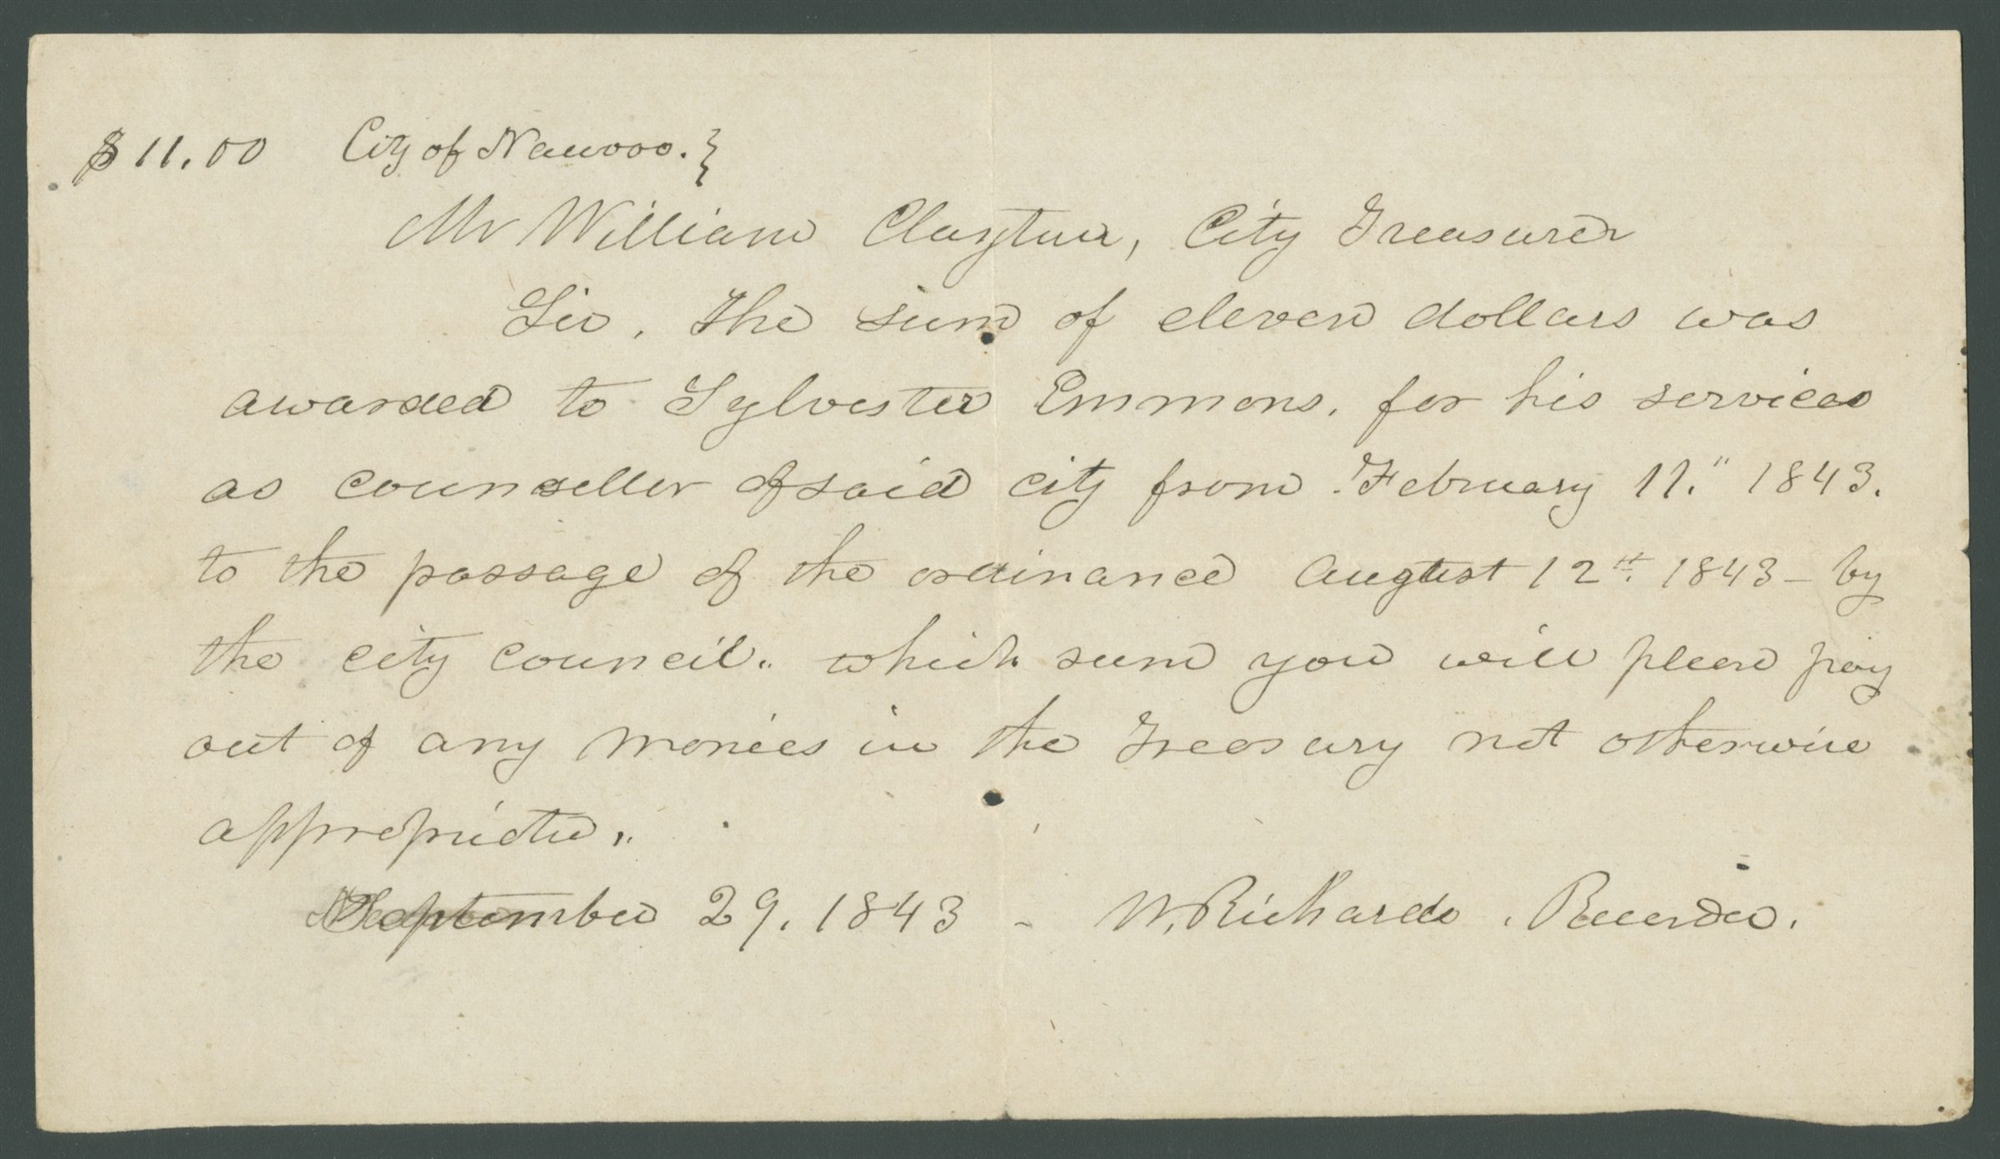 $11.00 City of Nauvoo. }
Mr William Clayton, City Treasurer
Sir, The sum of eleven dollars was
awarded to Sylvester Emmons, for his services
as counseller of said city from February 11." 1843.
to the passage of the ordinance August 12th. 1843 – by
the city council., which sum you will please pay
out of any monies in the Treasury not otherwise
appropriated.,
September 29. 1843 – W. Richards, Recorder.